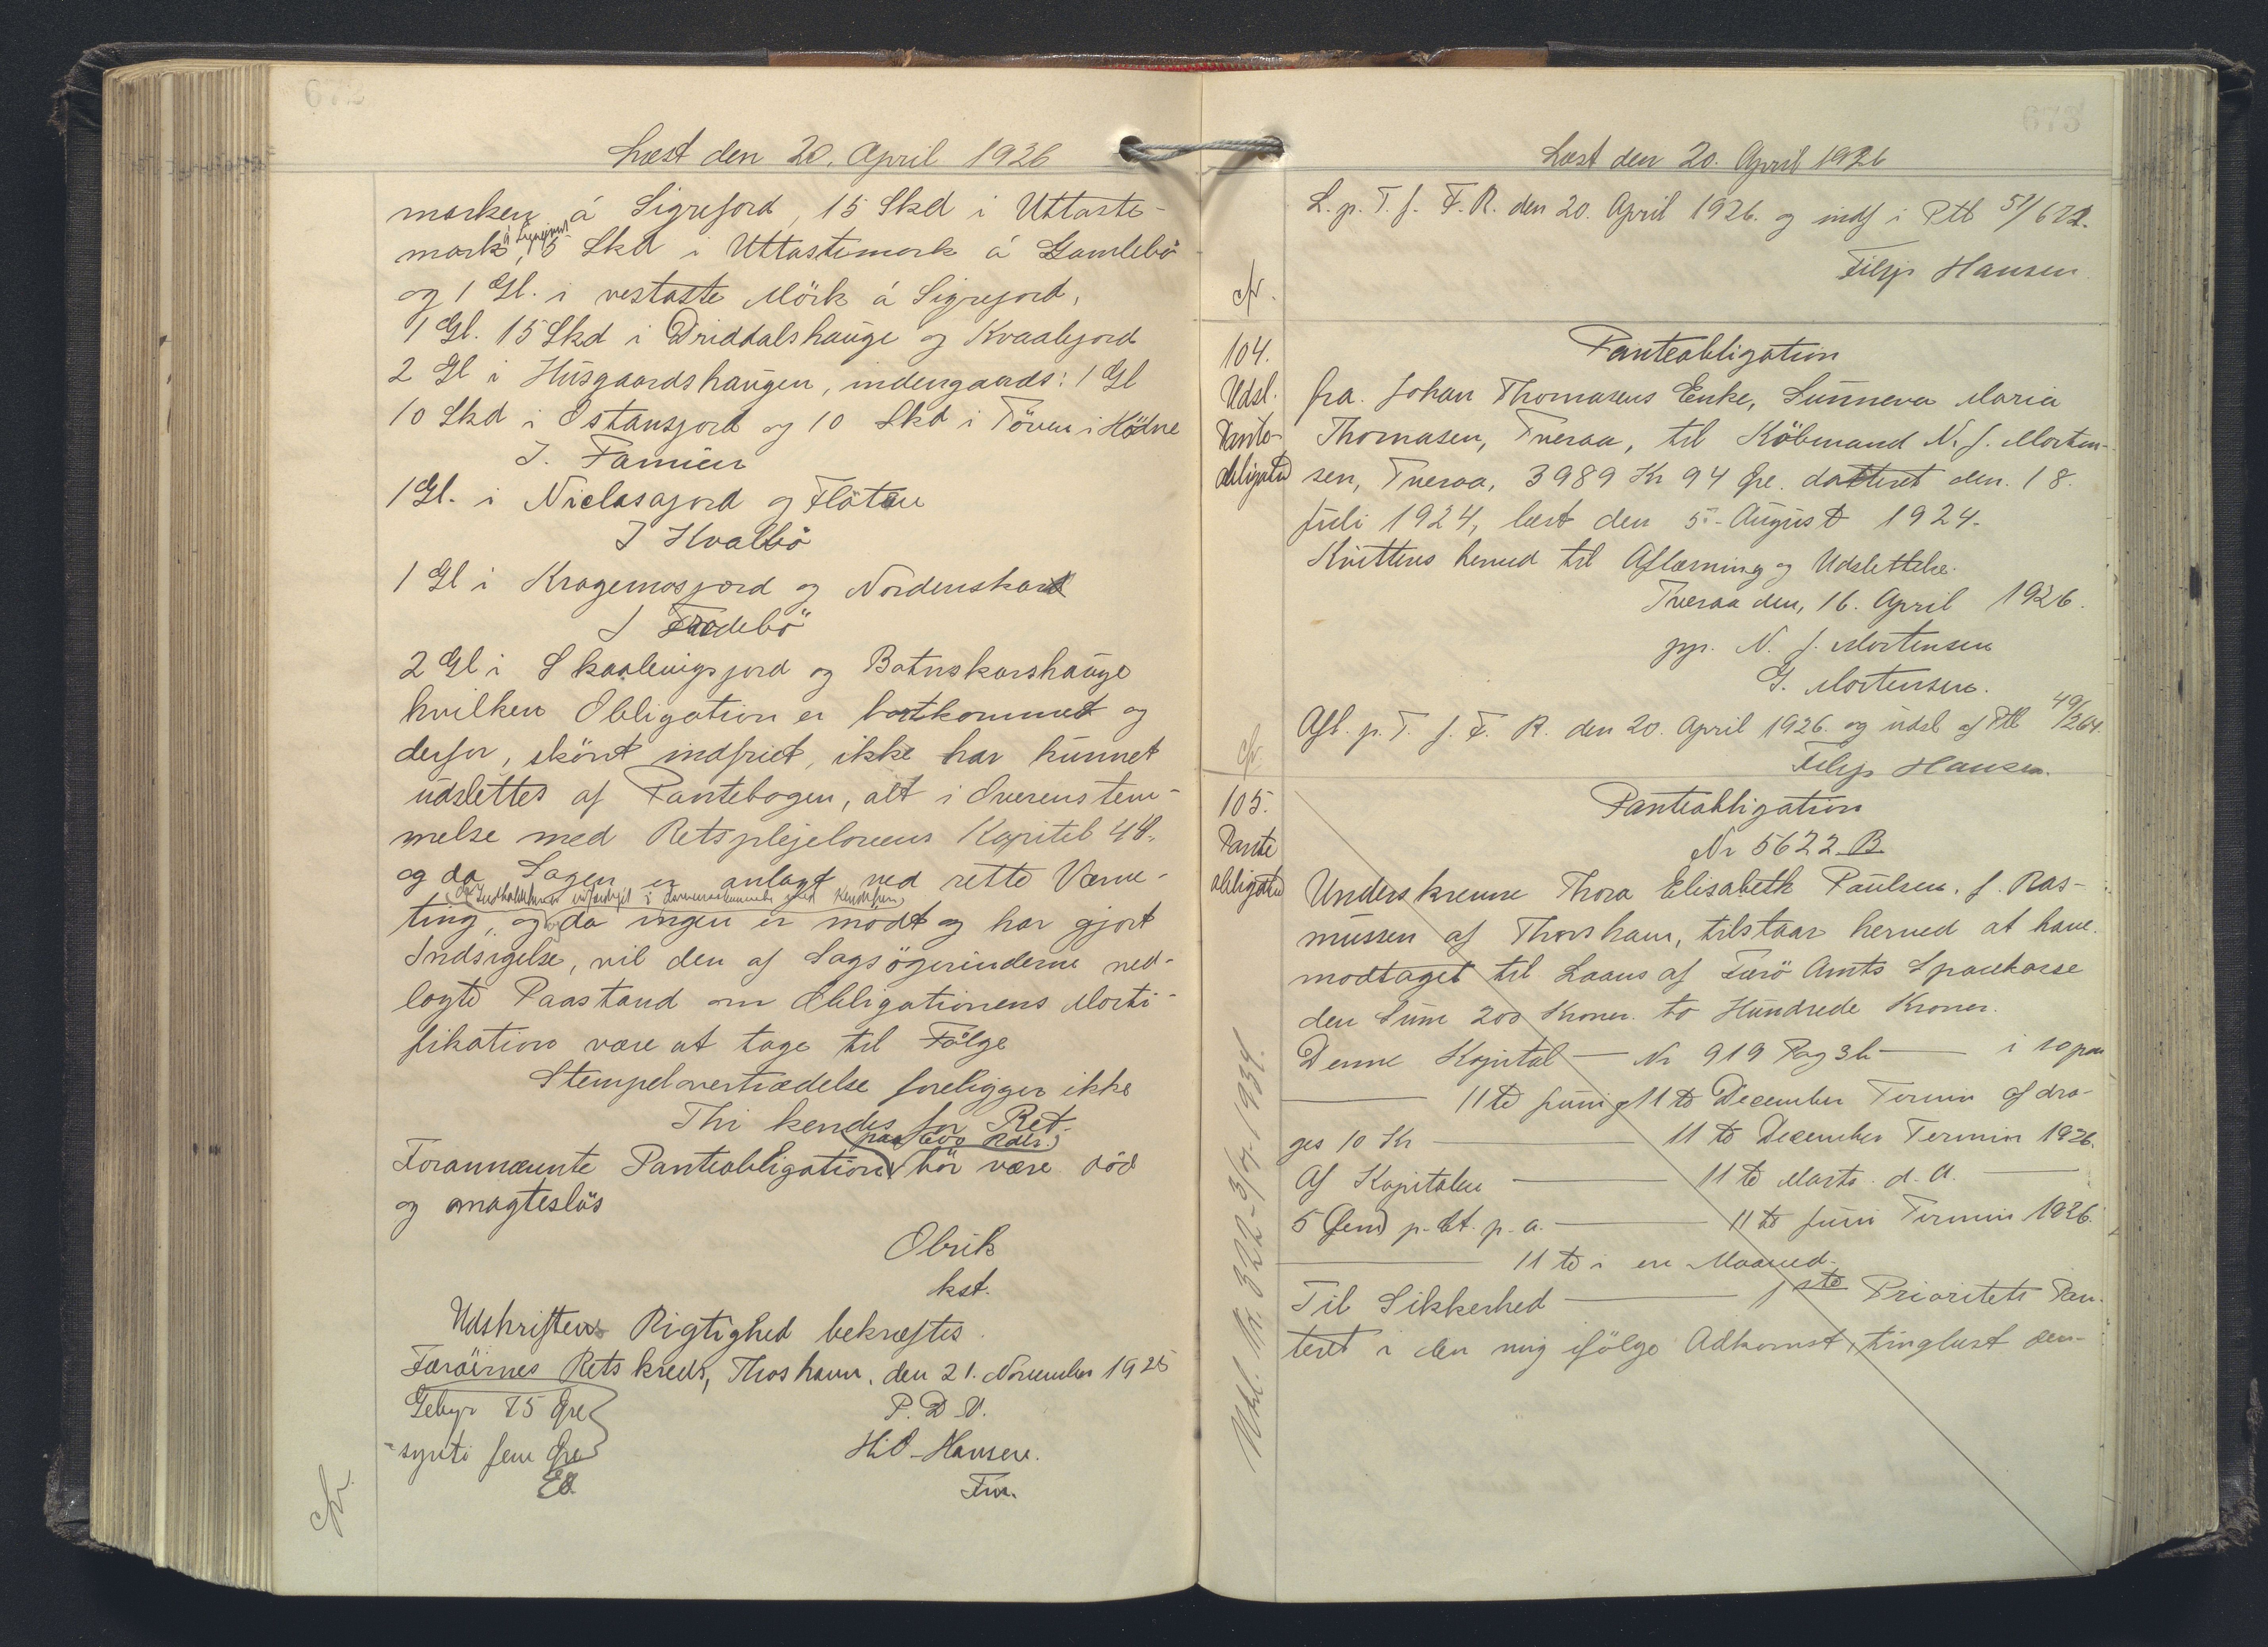 672
Læst den 20. April 1926
marken á Sigrefjord, 15 Skd i Uttaste-
mark á Sigrejord, 15 Skd i Uttastemark á Gamlebö
og 1 Gl. i vestaste Mörk á Sigrejord,
1 Gl. 15 Skd i Driddalshauge og Kvaalejord
2 Gl i Húsgaardshaugen, indengaards: 1 Gl
10 Skd i Östansjord og 10 Skd i Töven i Hødne
I. Famien
1 Gl. i Niclasajord og Flöten
I Hvalbö
1 Gl i Kragemosjord og Nordenskard
I Frodebö
2 Gl i Skaalengsjord og Botnskarshauge
hvilken Obligation er bortkommet og
derfor, skönt indfriet, ikke har kunnet
udslettes af Pantebogen, alt i Overensstem-
melse med Retsplejelovens Kapitel 44.,
og da Sagen er anlagt ved rette Værne-
ting, og da ingen er mödt og har gjort
Indsigelse, vil den af Sagsögerinderne ned-
lagte Paastand om Obligationens Morti-
fikation være at tage til Fölge
Stempelovertrædelse foreligger ikke
Thi kendes for Ret:
(paa 600 Rdlr.)
Forannævnte Panteobligation bör være död
og magteslös
Obrik
kst.
Udskriftens Rigtighed bekræftes.
Færöernes Retskreds, Thorshavn, den 21. November 1925
Gebyr 75 Øre P. D. V.
-syvti fem Øre H. O. Hansen.
EO. Fm.
cfr.
673
Læst den 20. April 1926
L. p. T. f. F. R. den 20. April 1926. og indf i Ptb 51/672.
Filip Hansen.
cfr.
104.
Udsl.
Pante-
obligation
Panteobligation
fra Johan Thomasens Enke, Sunneva Maria
Thomasen, Tveraa, til Köbmand N. J. Morten-
sen, Tveraa, 3989 Kr 94 Øre. dateret den. 18.
Juli 1924, læst den 5. August 1924.
Kvitteres herved til Aflæsning og Udslettelse.
Tveraa den, 16. April 1926.
pp. N. J. Mortensen
G. Mortensen.
Afl. p. T. f. F. R. den 20. April 1926. og udsl af Ptb 49/264.
Filip Hansen.
cfr.
105.
Pante
obligation
Panteobligation
Nr 5622 B.
Underskrevne Thora Elisabeth Paulsen, f. Ras-
mussen af Thorshavn, tilstaar herved at have
modtaget til Laans af Færö Amts Sparekasse
den Sum 200 Kroner. to Hundrede Kroner.
Denne Kapital — Nr 919 Pag 3b — i 10 paa
— 11te Juni og 11te December Termin afdra-
ges 10 Kr — 11te December Termin 1926.
Af Kapitalen — 11te Marts d. A. —
5 (fem) p. Ct. p. a. — 11te Juni Termin 1926.
— 11te i en Maaned.
Til Sikkerhed — 1ste Prioritets Pan-
teret i den mig ifölge Adkomst, tinglæst den-
Udsl. Nr. 322 - 3/7. 1934.